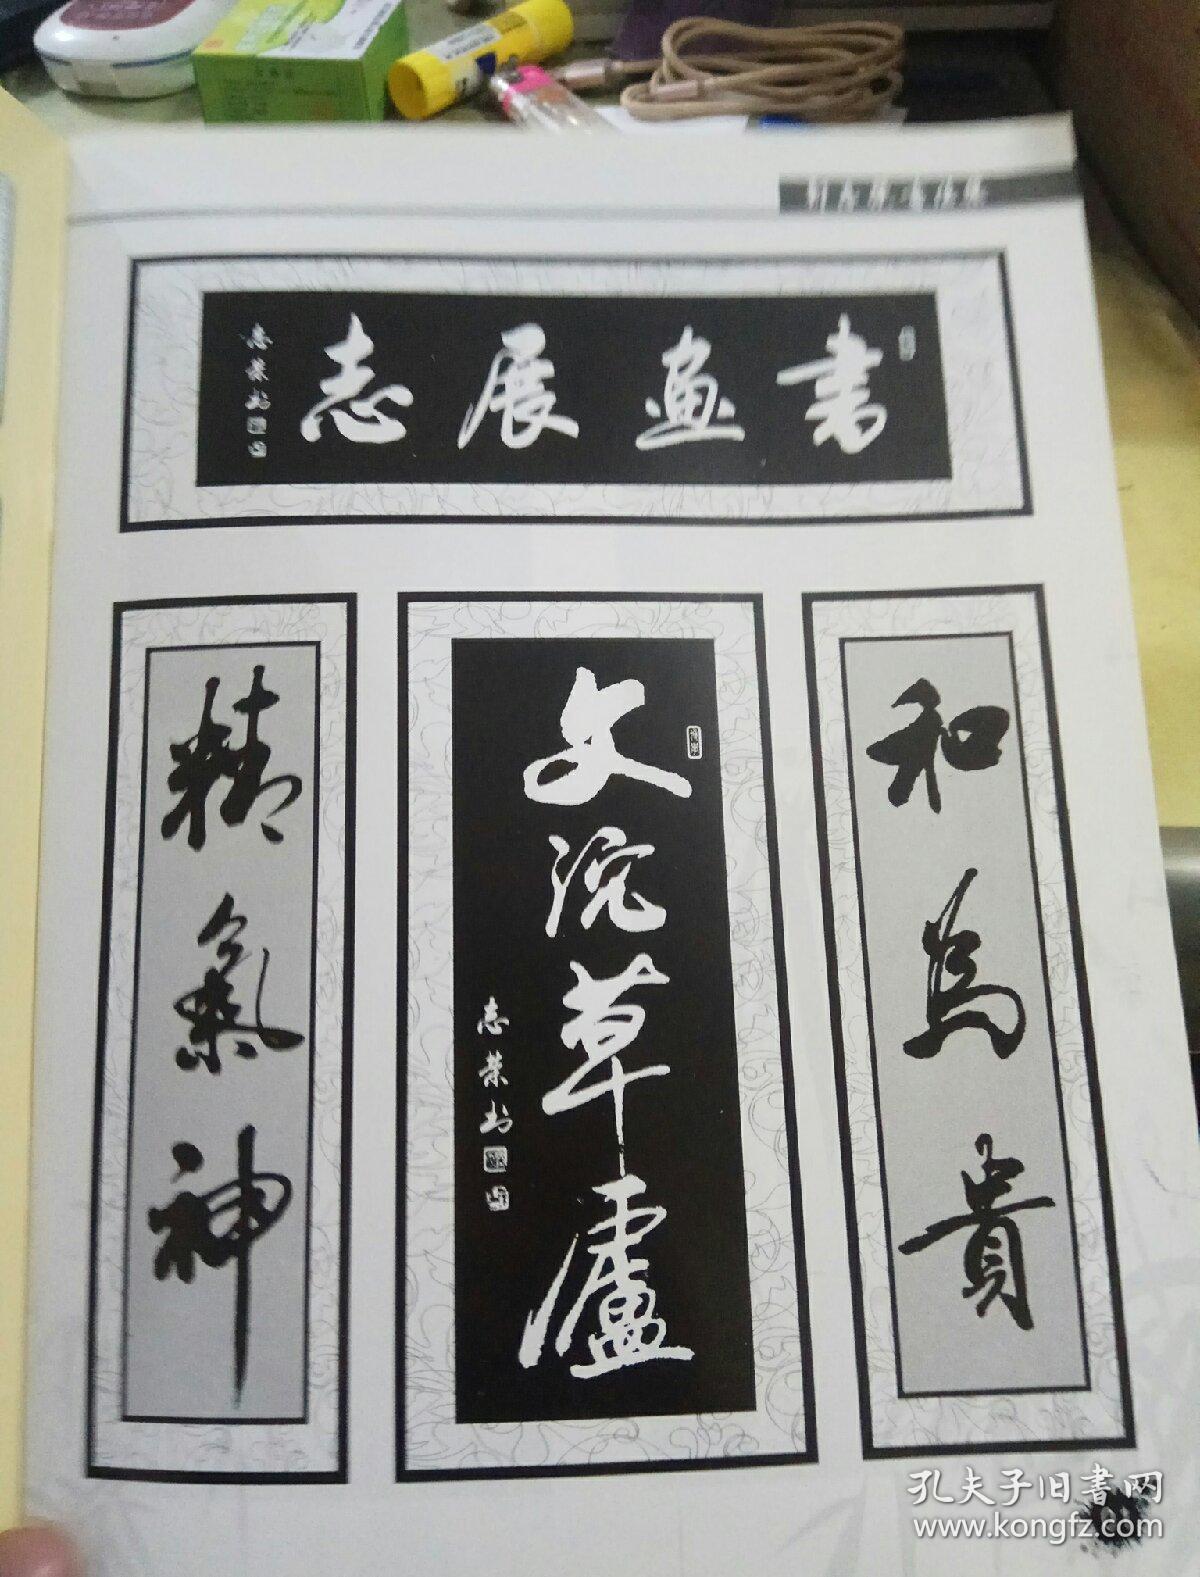 書畫展志
志榮书
和為貴
文浣草廬
志榮书
精氣神
孔夫子旧書网
www.kongfz.com